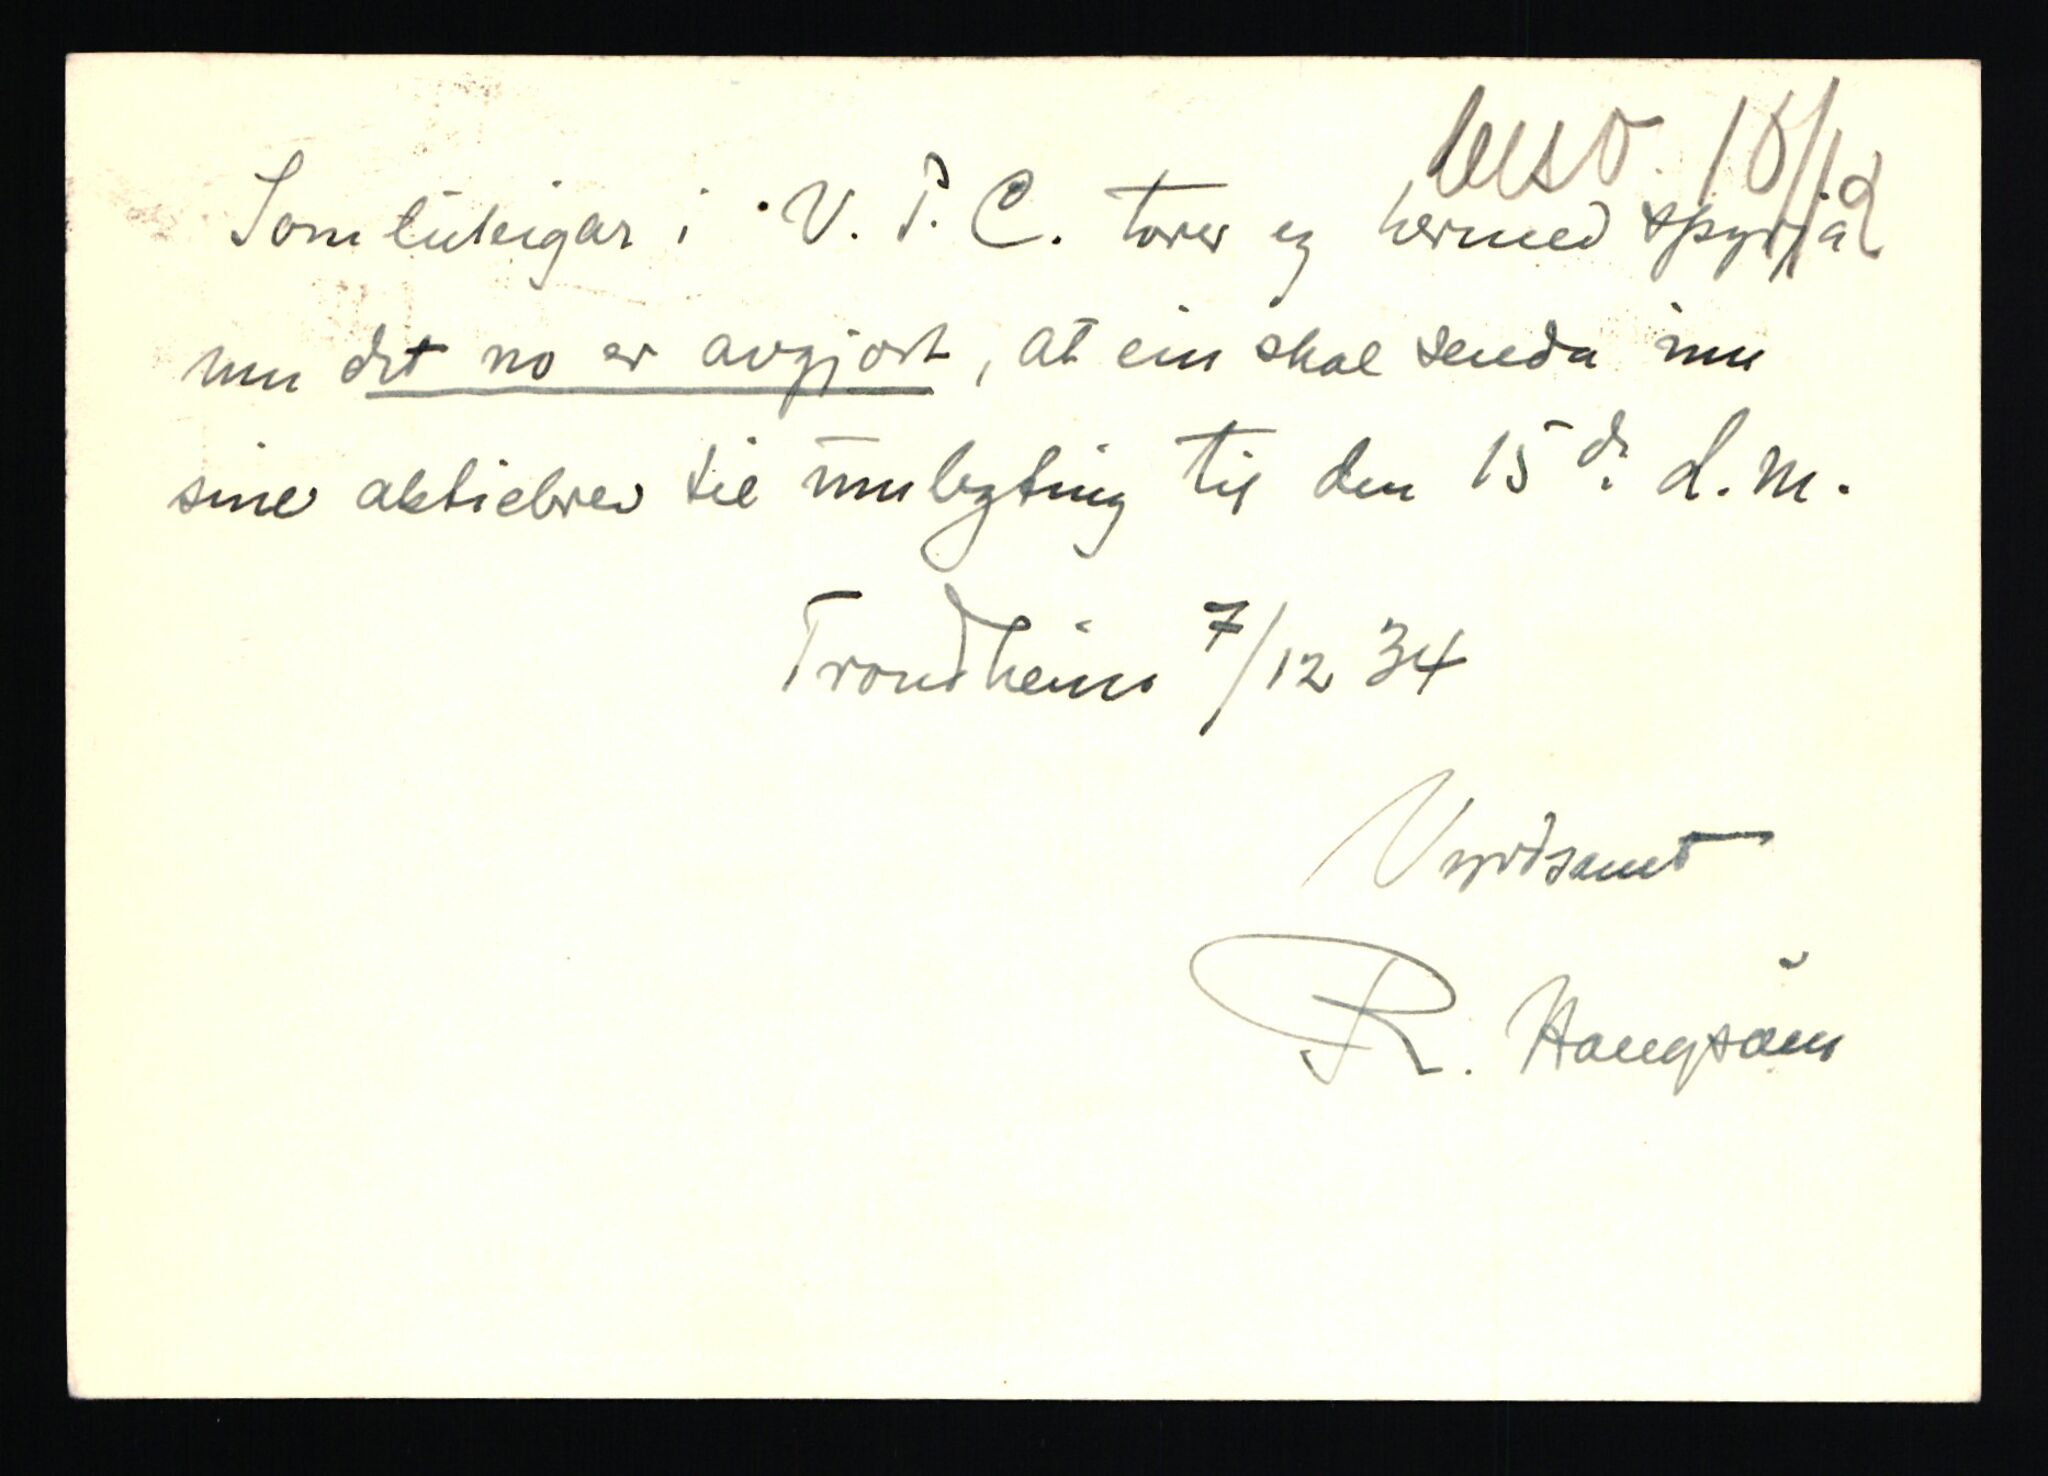 besv. 10/12
Som luteigar i V. P. C. torer eg hermed spyrja
um det no er avgjort, at ein skal senda inn
sine aktiebrev til umbyting til den 15de d.m.
Trondheim 7/12 34
Vyrdsamt
R. Haugsöen